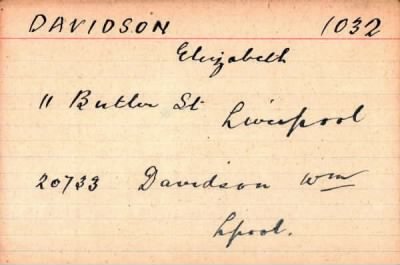 DAVIDSON 1032
Elizabeth
11 Butler St
Liverpool
20733 Davidson Wm
Lpool.